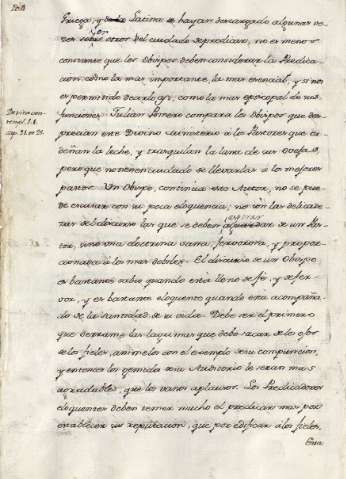 Griega, y de la Latina se hayan descargado algunas ve-
ces sobre otros del cuidado de predicar, no es menos
constante que los obispos deben considerar la Predica-
cion como la mas importante, la mas esencial, y si nos
es permitido decirlo asi, como la mas episcopal de sus
funciones. Julian Pomero compara los Obispos que des-
precian este Divino ministerio a los Pastores que or-
deñan la leche, y trasquilan la lana de sus Ovejas,
pero que no tienen cuidado de llevarlas à los mejores
pastos. Un Obispo, continua este Autor, no se pue-
de excusar con su poca eloquencia; no son las delicade-
zas del discurso las que se deben aguardar de un Pas-
tor, sino una doctrina sana, fervorosa, y propor-
cionada à los mas dobiles. El discurso de un Obispo
es bastante sabio quando està lleno de fé, y de fer-
vor, y es bastante eloquente quando està acompaña-
do de la santidad de su vida. Debe ser el primero
que derrame las lagrimas que debe sacar de los ojos
de los fieles, animelos con el exemplo de su compuncion,
y entonces los gemidos de su Auditorio le seran mas
agradables, que los vanos aplausos. Los Predicadores
eloquentes deben temer mucho el predicar mas por
establecer su reputacion, que por edificar à los fieles.